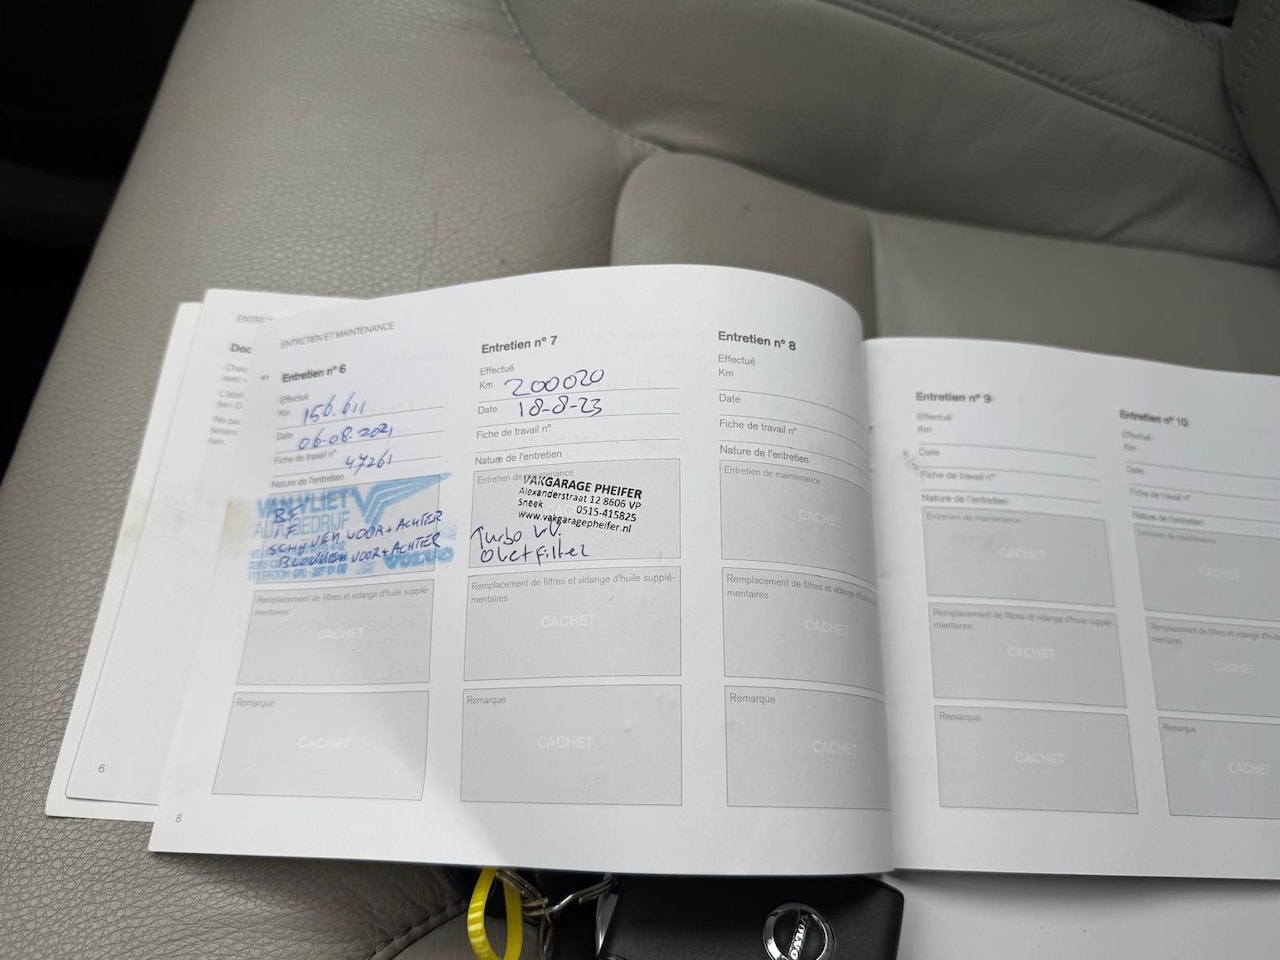 ENTRETIEN ET MAINTENANCE
Entretien nº 6
Effectué
Km 156.611
Date 06-08.2021
Fiche de travail nº 47261
Nature de l'entretien
VAN VLIET
AUTOBEDRIJF
SCHIJVEN VOOR + ACHTER
BLOKKEN VOOR + ACHTER
VOLVO
Remplacement de filtres et vidange d'huile supplé-
mentaires
CACHET
Remarque
CACHET
6
8
Entretien nº 7
Effectué
Km 200020
Date 18-8-23
Fiche de travail nº
Nature de l'entretien
Entretien de maintenance
VAKGARAGE PHEIFER
Alexanderstraat 12 8606 VP
Sneek 0515-415825
www.vakgaragepheifer.nl
Turbo
Remplacement de filtres et vidange d'huile supplé-
mentaires
CACHET
Remarque
CACHET
Entretien nº 8
Effectué
Km
Date
Fiche de travail nº
Nature de l'entretien
Entretien de maintenance
CACHET
Remplacement de filtres et vidange d'huile supplé-
mentaires
CACHET
Remarque
CACHET
Entretien nº 9
Effectué
Km
Date
Fiche de travail nº
Nature de l'entretien
Entretien de maintenance
CACHET
Remplacement de filtres et vidange d'huile supplé-
mentaires
CACHET
Remarque
CACHET
Entretien nº 10
Effectué
Km
Date
Fiche de travail nº
Nature de l'entretien
Entretien de maintenance
CACHET
Remplacement de filtres et vidange d'huile
mentaires
CACHET
Remarque
CACHET
VOLVO